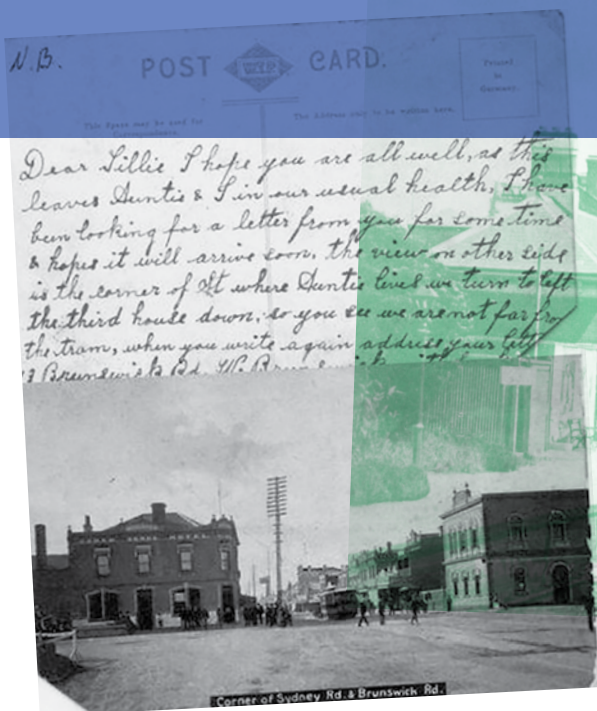 N.B.
POST CARD.
Printed in Germany.
This Space may be used for Correspondence.
The Address only to be written here.
Dear Lillie I hope you are all well, as this
leaves Auntie & I in our usual health, I have
been looking for a letter from you for some time
& hopes it will arrive soon. the view on other side
is the corner of St where Auntie lives we turn to left
the third house down, so you see we are not far from
the tram, when you write again address your letter
Brunswick Rd. W. Brunswick
Corner of Sydney Rd. & Brunswick Rd.